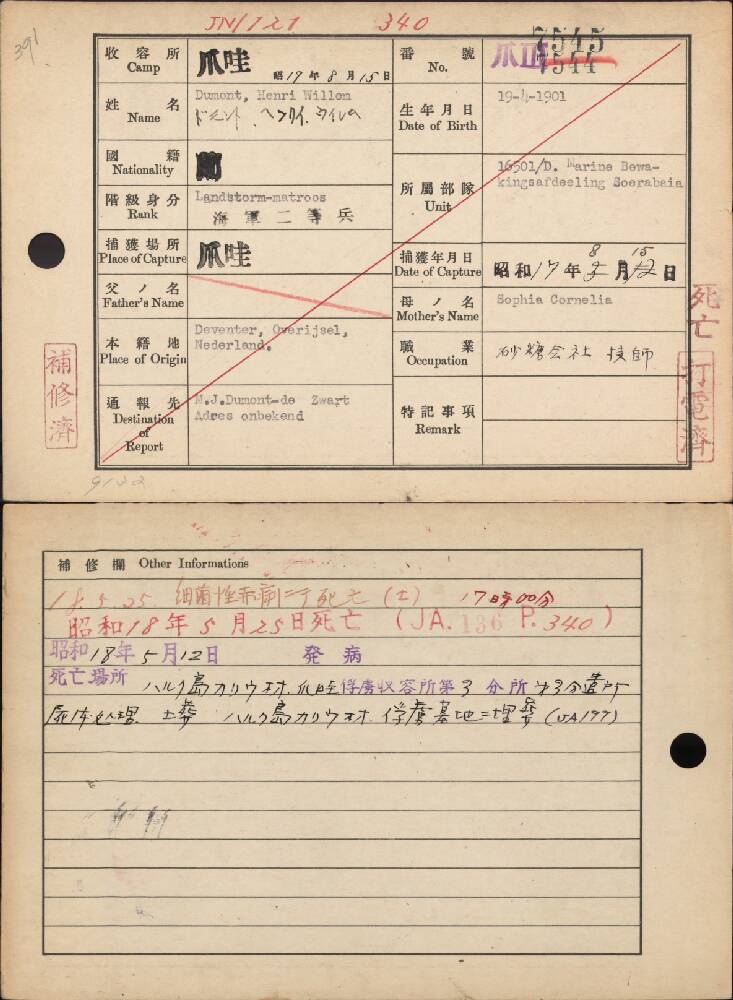 JN/127 340
391
收容所 Camp 爪哇 昭17年8月15日
番號 No. 爪哇 7545 7544
姓名 Name Dumont, Henri Willem
生年月日 Date of Birth 19-4-1901
國籍 Nationality
階級身分 Rank Landstorm-matroos 海軍二等兵
所屬部隊 Unit 16501/D. Marine Bewa-
kingsafdeeling Soerabaia
捕獲場所 Place of Capture 爪哇
捕獲年月日 Date of Capture 昭和17年8月15日
父ノ名 Father's Name
母ノ名 Mother's Name Sophia Cornelia
死亡
本籍地 Place of Origin Deventer, Overijsel,
Nederland.
職業 Occupation 砂糖会社 技師
補修濟
打電濟
通報先 Destination of Report M.J.Dumont-de Zwart
Adres onbekend
特記事項 Remark
9122
補修欄 Other Informations
18.5.25. 細菌性赤痢ニテ死亡 (土) 17時00分
昭和18年5月25日死亡 (JA.136 P.340)
昭和18年5月12日 発病
死亡場所 ハルク島カリウオ村 爪哇俘虜収容所第3分所第3分遣所
屍体処理 土葬 ハルク島カリウオ村 俘虜墓地ニ埋葬 (JA177)